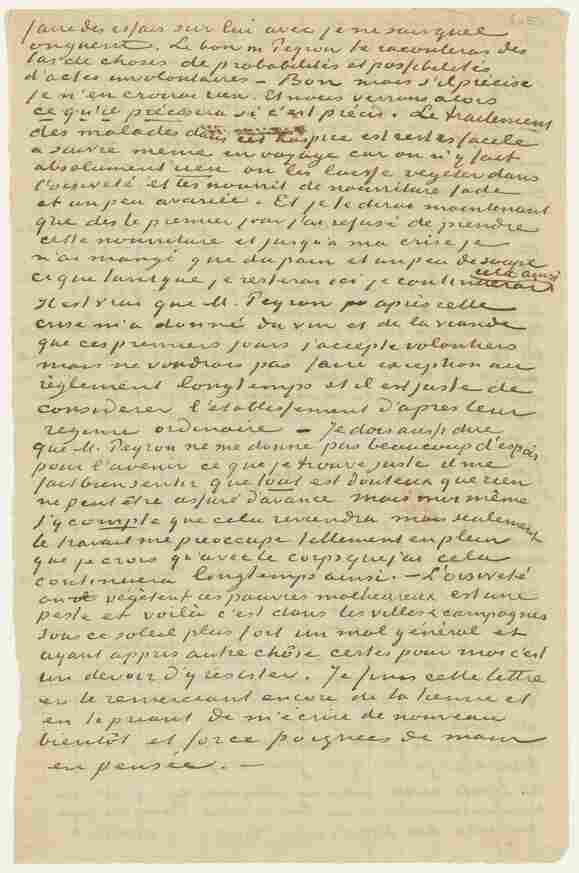 faire des essais sur lui avec je ne sais quel
onguent. Le bon m Peyron te raconteras des
tas de choses de probabilités et possibilités
d'actes involontaires – Bon mais s'il précise
je n'en croirai rien. Et nous verrons alors
ce qu'il précisera si c'est précis. Le traitement
des malades dans cet hospice est certes facile
à suivre même en voyage car on n'y fait
absolument rien on les laisse vegeter dans
l'oisiveté et les nourrit de nourriture fade
et un peu avariée. Et je te dirai maintenant
que dès le premier jour j'ai refusé de prendre
cette nourriture et jusqu'à ma crise je
n'ai mangé que du pain et un peu de soupe
ce que tant que je resterai ici je continuerai
cela ainsi
Il est vrai que M. Peyron après cette
crise m'a donné du vin et de la viande
que ces premiers jours j'accepte volontiers
mais ne voudrais pas faire exception au
règlement longtemps et il est juste de
considérer l'établissement d'après leur
regime ordinaire – Je dois aussi dire
que M. Peyron ne me donne pas beaucoup d'espoir
pour l'avenir ce que je trouve juste il me
fait bien sentir que tout est douteux que rien
ne peut être assuré d'avance mais moi même
j'y compte que cela reviendra mais seulement
le travail me préoccupe tellement en plein
que je crois qu'avec le corps que j'ai cela
continuera longtemps ainsi. – L'oisiveté
où végètent ces pauvres malheureux est une
peste et voilà c'est dans les villes & campagnes
sous ce soleil plus fort un mal général et
ayant appris autre chôse certes pour moi c'est
un devoir d'y résister. Je finis cette lettre
en te remerciant encore de la tienne et
en te priant de m'écrire de nouveau
bientôt et force poignées de main
en pensée. –